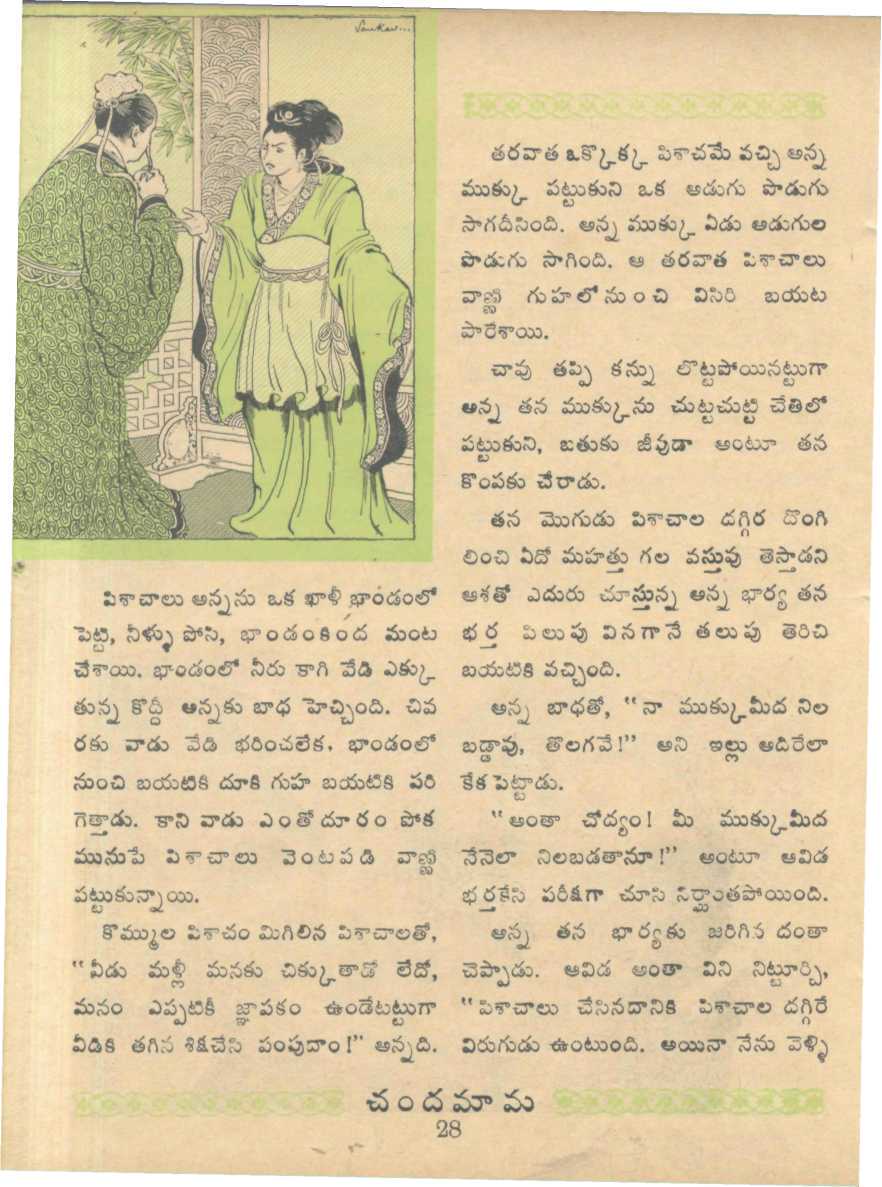 Sankar...
పిశాచాలు అన్నను ఒక ఖాళీ భాండంలో
పెట్టి, నీళ్ళు పోసి, భాండంకింద మంట
చేశాయి. భాండంలో నీరు కాగి వేడి ఎక్కు
తున్న కొద్దీ అన్నకు బాధ హెచ్చింది. చివ
రకు వాడు వేడి భరించలేక, భాండంలో
నుంచి బయటికి దూకి గుహ బయటికి పరి
గెత్తాడు. కాని వాడు ఎంతో దూరం పోక
మునుపే పిశాచాలు వెంటపడి వాణ్ణి
పట్టుకున్నాయి.
కొమ్ముల పిశాచం మిగిలిన పిశాచాలతో,
"వీడు మళ్లీ మనకు చిక్కుతాడో లేదో,
మనం ఎప్పటికీ జ్ఞాపకం ఉండేటట్టుగా
వీడికి తగిన శిక్షచేసి పంపుదాం!" అన్నది.
తరవాత ఒక్కొక్క పిశాచమే వచ్చి అన్న
ముక్కు పట్టుకుని ఒక అడుగు పొడుగు
సాగదీసింది. అన్న ముక్కు ఏడు అడుగుల
పొడుగు సాగింది. ఆ తరవాత పిశాచాలు
వాణ్ణి గుహలోనుంచి విసిరి బయట
పారేశాయి.
చావు తప్పి కన్ను లొట్టపోయినట్టుగా
అన్న తన ముక్కును చుట్టచుట్టి చేతిలో
పట్టుకుని, బతుకు జీవుడా అంటూ తన
కొంపకు చేరాడు.
తన మొగుడు పిశాచాల దగ్గిర దొంగి
లించి ఏదో మహత్తు గల వస్తువు తెస్తాడని
ఆశతో ఎదురు చూస్తున్న అన్న భార్య తన
భర్త పిలుపు వినగానే తలుపు తెరిచి
బయటికి వచ్చింది.
అన్న బాధతో, "నా ముక్కుమీద నిల
బడ్డావు, తొలగవే!" అని ఇల్లు అదిరేలా
కేకపెట్టాడు.
"అంతా చోద్యం! మీ ముక్కుమీద
నేనెలా నిలబడతానూ!" అంటూ ఆవిడ
భర్తకేసి పరీక్షగా చూసి నిర్ఘాంతపోయింది.
అన్న తన భార్యకు జరిగిన దంతా
చెప్పాడు. ఆవిడ అంతా విని నిట్టూర్చి,
"పిశాచాలు చేసినదానికి పిశాచాల దగ్గిరే
విరుగుడు ఉంటుంది. అయినా నేను వెళ్ళి
చందమామ
28